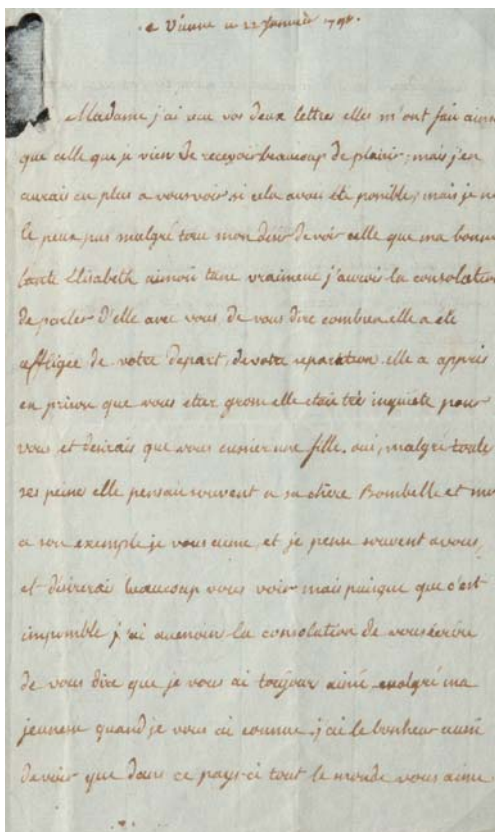 a Vienne ce 22 Janvier 1796.
Madame j'ai reçu vos deux lettres elles m'ont fait ainsi
que celle que je vien de recevoir beaucoup de plaisir; mais j'en
aurais eu plus a vous voir si cela avoit été possible; mais je ne
le peux pas malgré tout mon desir de voir celle que ma bonne
tante Elisabeth aimoit tant vraiment j'aurois la consolation
de parler d'elle avec vous de vous dire combien elle a été
affligée de votre depart, de votre separation elle a appris
en prison que vous etiez grosse elle étoit très inquiete pour
vous et desirais que vous eussiez une fille. oui, malgré toute
ses peine elle pensait souvent a sa chère Bombelle et moi
a son exemple je vous aime, et je pense souvent a vous,
et désirerais beaucoup vous voir mais puisque que c'est
impossible j'ai aumoins la consolation de vous écrire
de vous dire que je vous ai toujour aimé malgré ma
jeunesse quand je vous ai connue. j'ai le bonheur aussi
de voir que dans ce pays-ci tout le monde vous aime